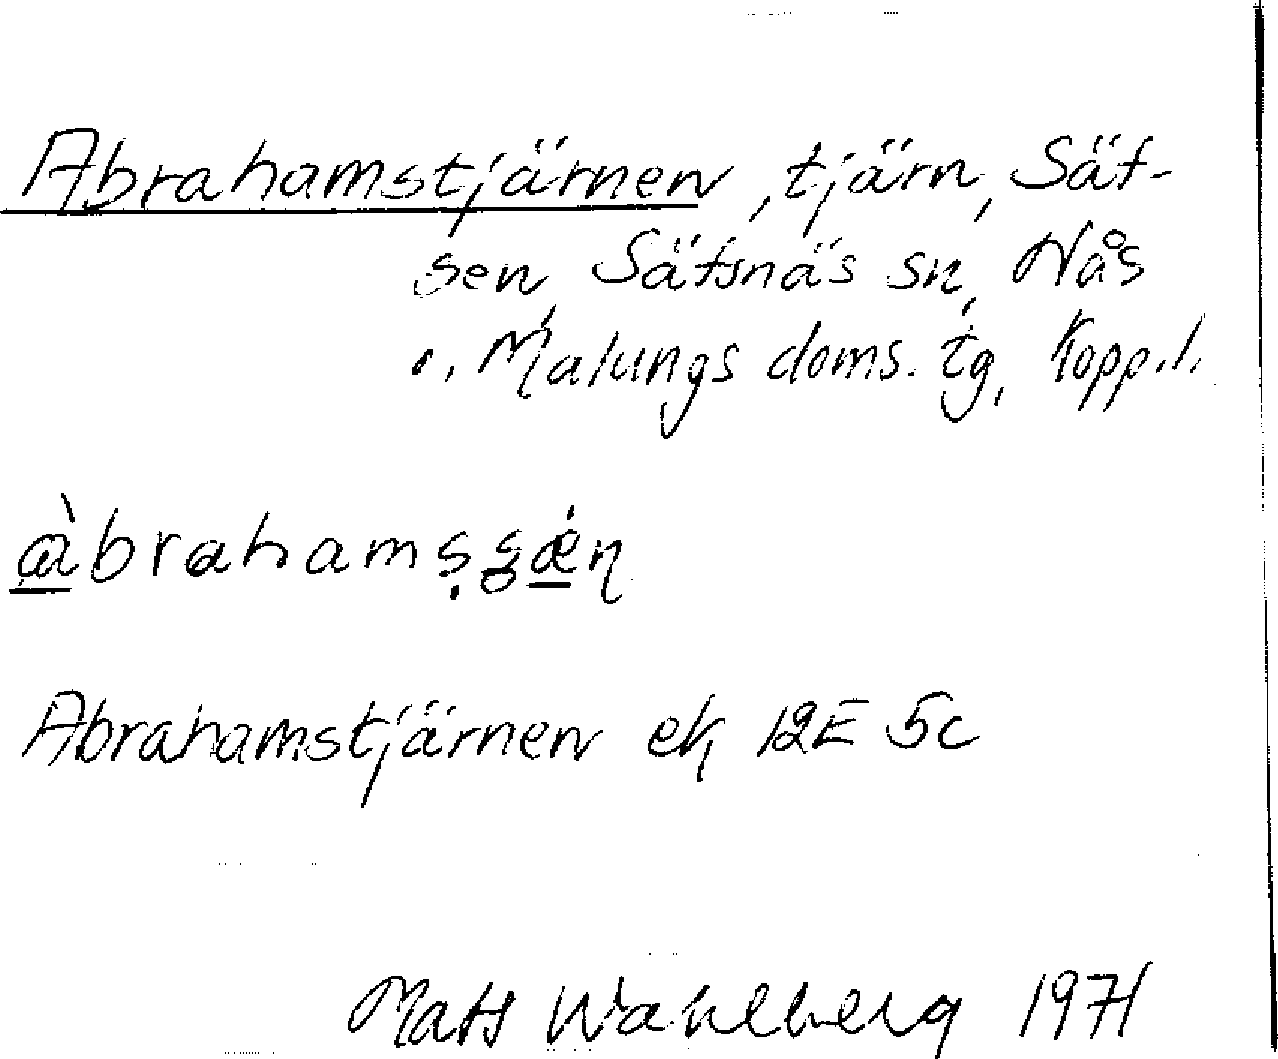 Abrahamstjärnen, tjärn, Säf-
sen, Säfsnäs sn, Nås
o. Malungs doms. tg, Kopp.l.
Abrahamstjärnen ek 12E 5c
Mats Wahlberg 1971